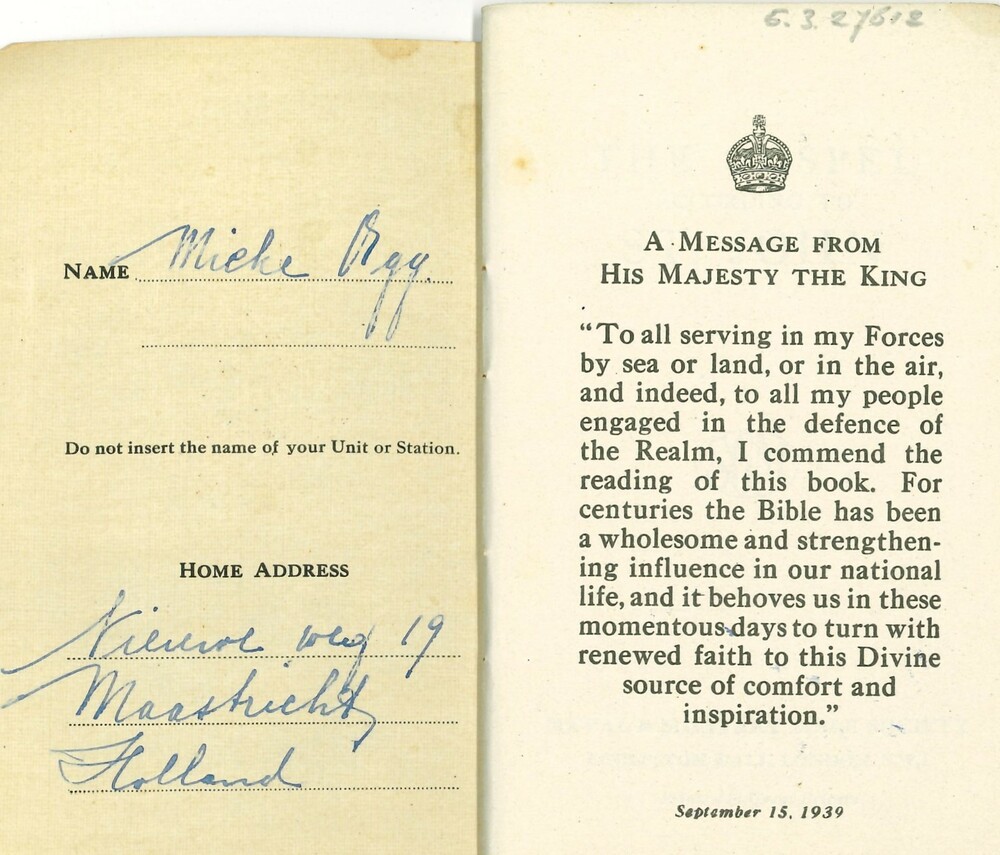 NAME Mieke
Do not insert the name of your Unit or Station.
HOME ADDRESS
Nieuwe weg 19
Maastricht
Holland
A MESSAGE FROM
HIS MAJESTY THE KING
“To all serving in my Forces
by sea or land, or in the air,
and indeed, to all my people
engaged in the defence of
the Realm, I commend the
reading of this book. For
centuries the Bible has been
a wholesome and strengthen-
ing influence in our national
life, and it behoves us in these
momentous days to turn with
renewed faith to this Divine
source of comfort and
inspiration.”
September 15, 1939